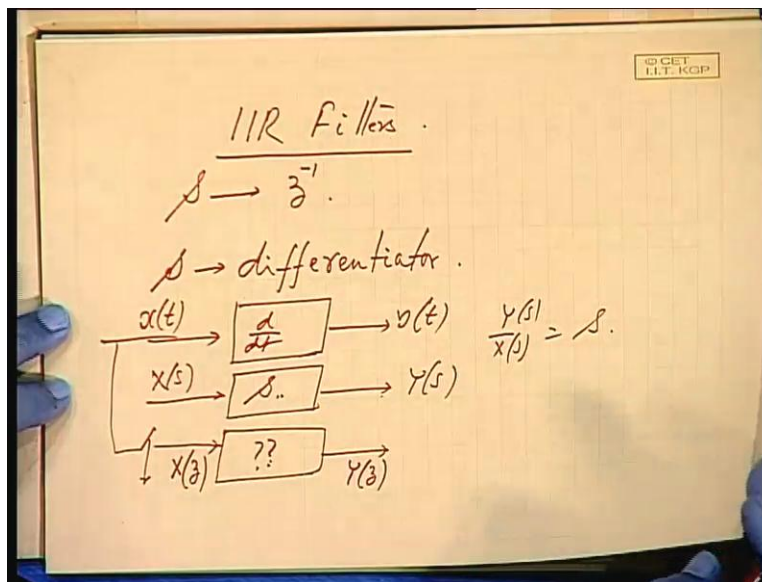 © CET
I.I.T. KGP
IIR Filters.
s → z⁻¹.
s → differentiator.
x(t) → d/dt → y(t) Y(s)/X(s) = s.
X(s) → s.. → Y(s)
X(z) → ?? → Y(z)